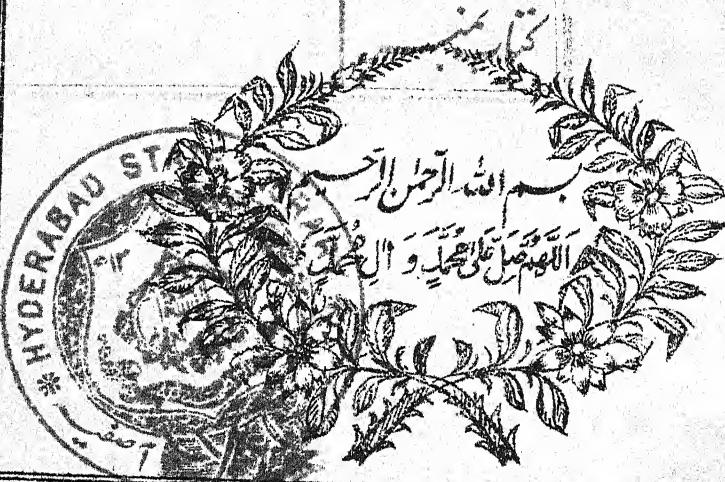 کتاب نمبر
بسم الله الرحمن الرحيم
اَللّٰهُمَّ صَلِّ عَلٰى مُحَمَّدٍ وَ اٰلِ مُحَمَّدٍ
HYDERABAD STA
آصفیہ